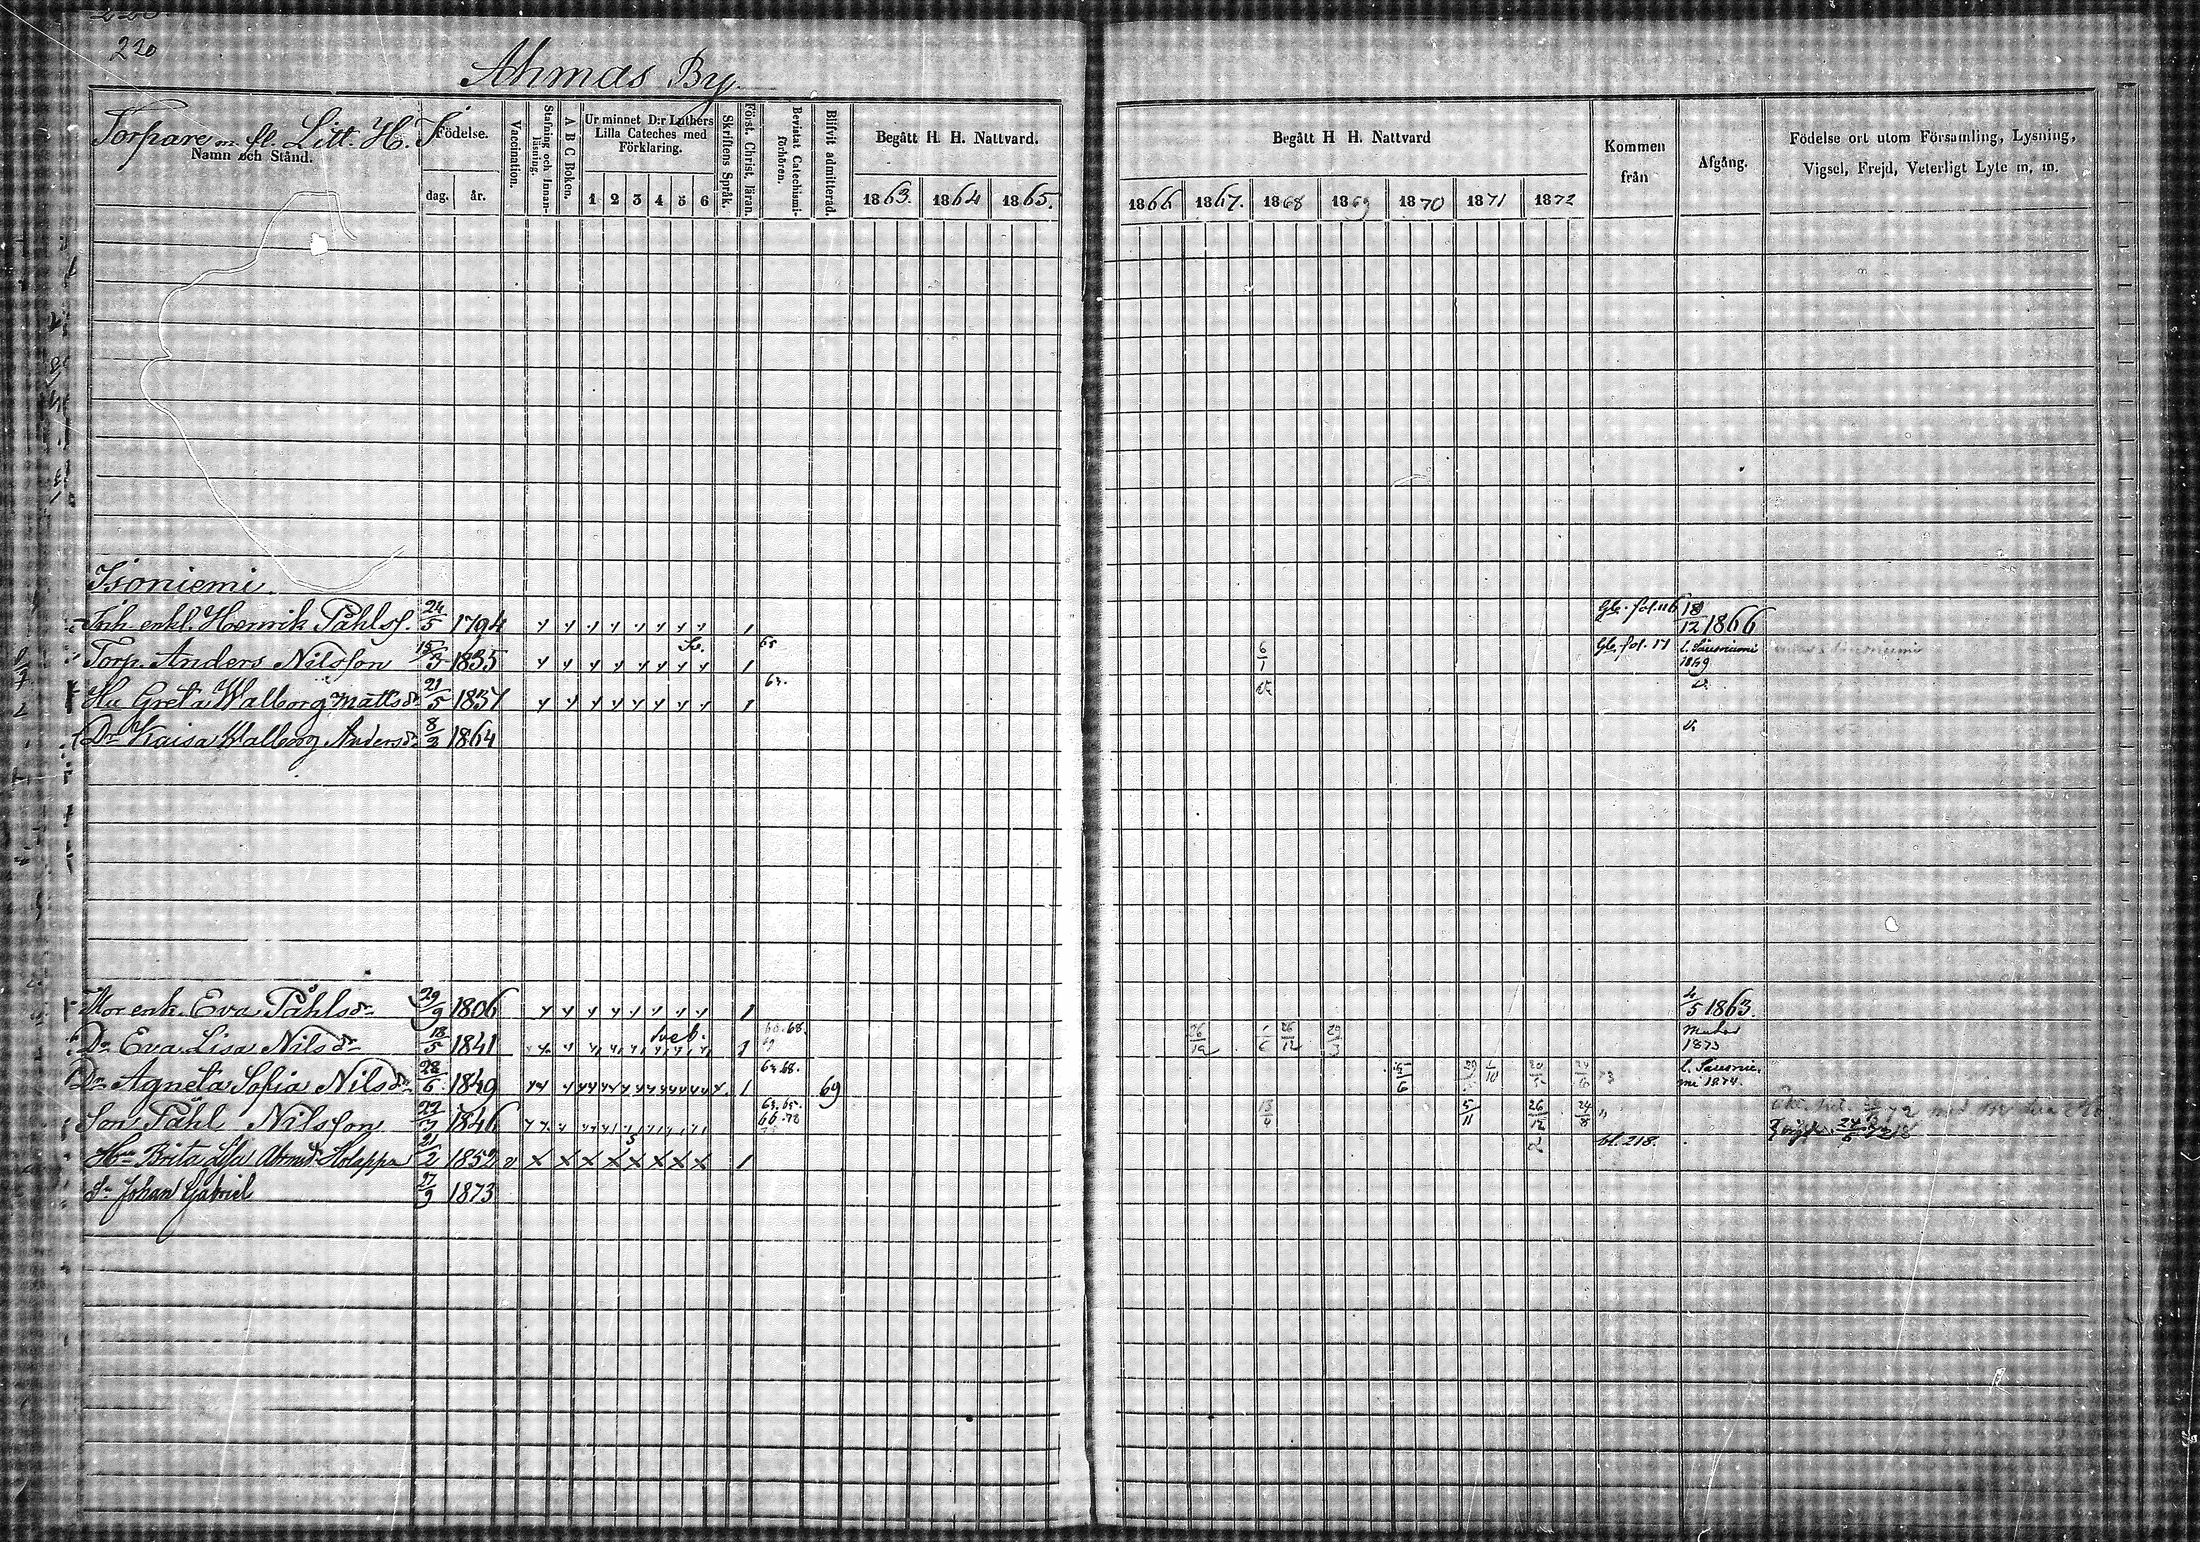 220
Ahmas By
Torpare m. fl. Litt. H. I
Namn och Stånd.
Födelse.
dag. år.
Vaccination.
Stafning och Innanläsning.
A B C Boken.
Ur minnet D:r Luthers Lilla Cateches med Förklaring.
1 2 3 4 5 6
Skriftens Språk.
Först. Christ. läran.
Bevistat Catechismiförhören.
Blifvit admitterad.
Begått H. H. Nattvard.
1863. 1864 1865.
Begått H H. Nattvard
1866 1867. 1868 1869 1870 1871 1872
Kommen från
Afgång.
Födelse ort utom Församling, Lysning,
Vigsel, Frejd, Veterligt Lyte m, m.
Isoniemi.
Inh. enkl. Henrik Påhlss. 24/5 1794 1 Gb. fol. 116 18/12 1866
Torp. Anders Nilsson 15/3 1835 1 65 6/1 Gb. fol. 17 1869
Hu Greta Walborg Mattsdr 21/5 1837 1 63.
Dr Kaisa Walborg Andersdr 8/3 1864
Mor enk. Eva Påhlsdr 29/9 1806 1 4/5 1863.
Dr Eva Lisa Nilsdr 18/5 1841 sveb. 1 68. 26/12 1/6 26/12 29/3 1873
Dr Agneta Sofia Nilsdr 28/6 1849 1 63. 68. 69 1874.
Son Påhl Nilsson 22/3 1846 63. 65. 66. 72 5/11 26/12 24/8
Hu Brita Lisa Holappa 21/2 1852 v 1 bl. 218.
Sn Johan Gabriel 27/9 1873